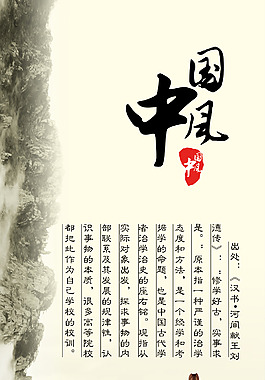 中国风
中国风
出处：《汉书•河间献王刘
德传》：：修学好古，实事求
是。：原本指一种严谨的治学
态度和方法，是一个经学和考
据学的命题，也是中国古代学
者治学治史的座右铭。现指从
实际对象出发，探求事物的内
部联系及其发展的规律性，认
识事物的本质，很多高等院校
都把此作为自己学校的校训。